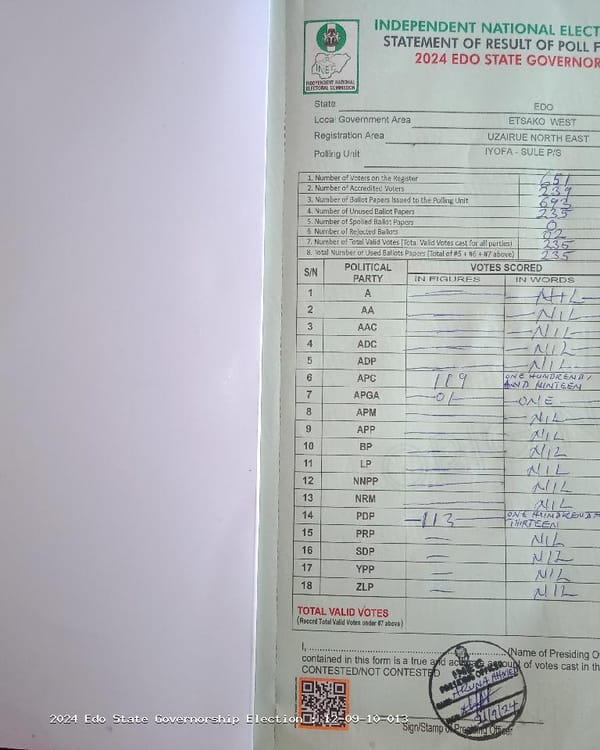 INDEPENDENT NATIONAL ELECT
STATEMENT OF RESULT OF POLL F
2024 EDO STATE GOVERNOR
INEC
INDEPENDENT NATIONAL
ELECTORAL COMMISSION
State EDO
Local Government Area ETSAKO WEST
Registration Area UZAIRUE NORTH EAST
Polling Unit IYOFA - SULE P/S
1. Number of Voters on the Register 651
2. Number of Accredited Voters 239
3. Number of Ballot Papers Issued to the Polling Unit 693
4. Number of Unused Ballot Papers 235
5. Number of Spoiled Ballot Papers 0
6. Number of Rejected Ballots 02
7. Number of Total Valid Votes (Total Valid Votes cast for all parties) 235
8. Total Number of Used Ballots Papers (Total of #5 + #6 + #7 above) 235
S/N POLITICAL PARTY VOTES SCORED
IN FIGURES IN WORDS
1 A NIL
2 AA NIL
3 AAC NIL
4 ADC NIL
5 ADP NIL
6 APC 119 ONE HUNDREND, AND NINTEEN
7 APGA 01 ONE
8 APM NIL
9 APP NIL
10 BP NIL
11 LP NIL
12 NNPP NIL
13 NRM NIL
14 PDP 113 ONE HUNDREND & THIRTEEN
15 PRP NIL
16 SDP NIL
17 YPP NIL
18 ZLP NIL
TOTAL VALID VOTES
(Record Total Valid Votes under #7 above)
I, (Name of Presiding O
contained in this form is a true and accurate account of votes cast in th
CONTESTED/NOT CONTESTED
INEC
PRESIDING OFFICER
21/9/24
Sign/Stamp of Presiding Officer
2024 Edo State Governorship Election 12-09-10-013